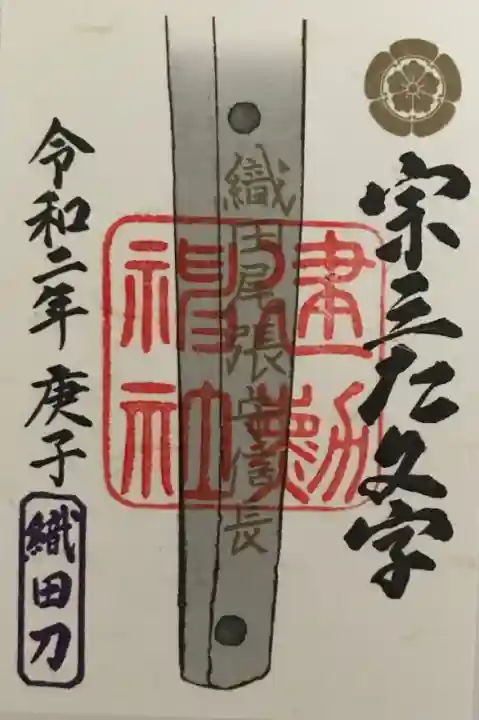 宗三左文字
建勲
神社
織田尾張守信長
令和二年 庚子
織田刀